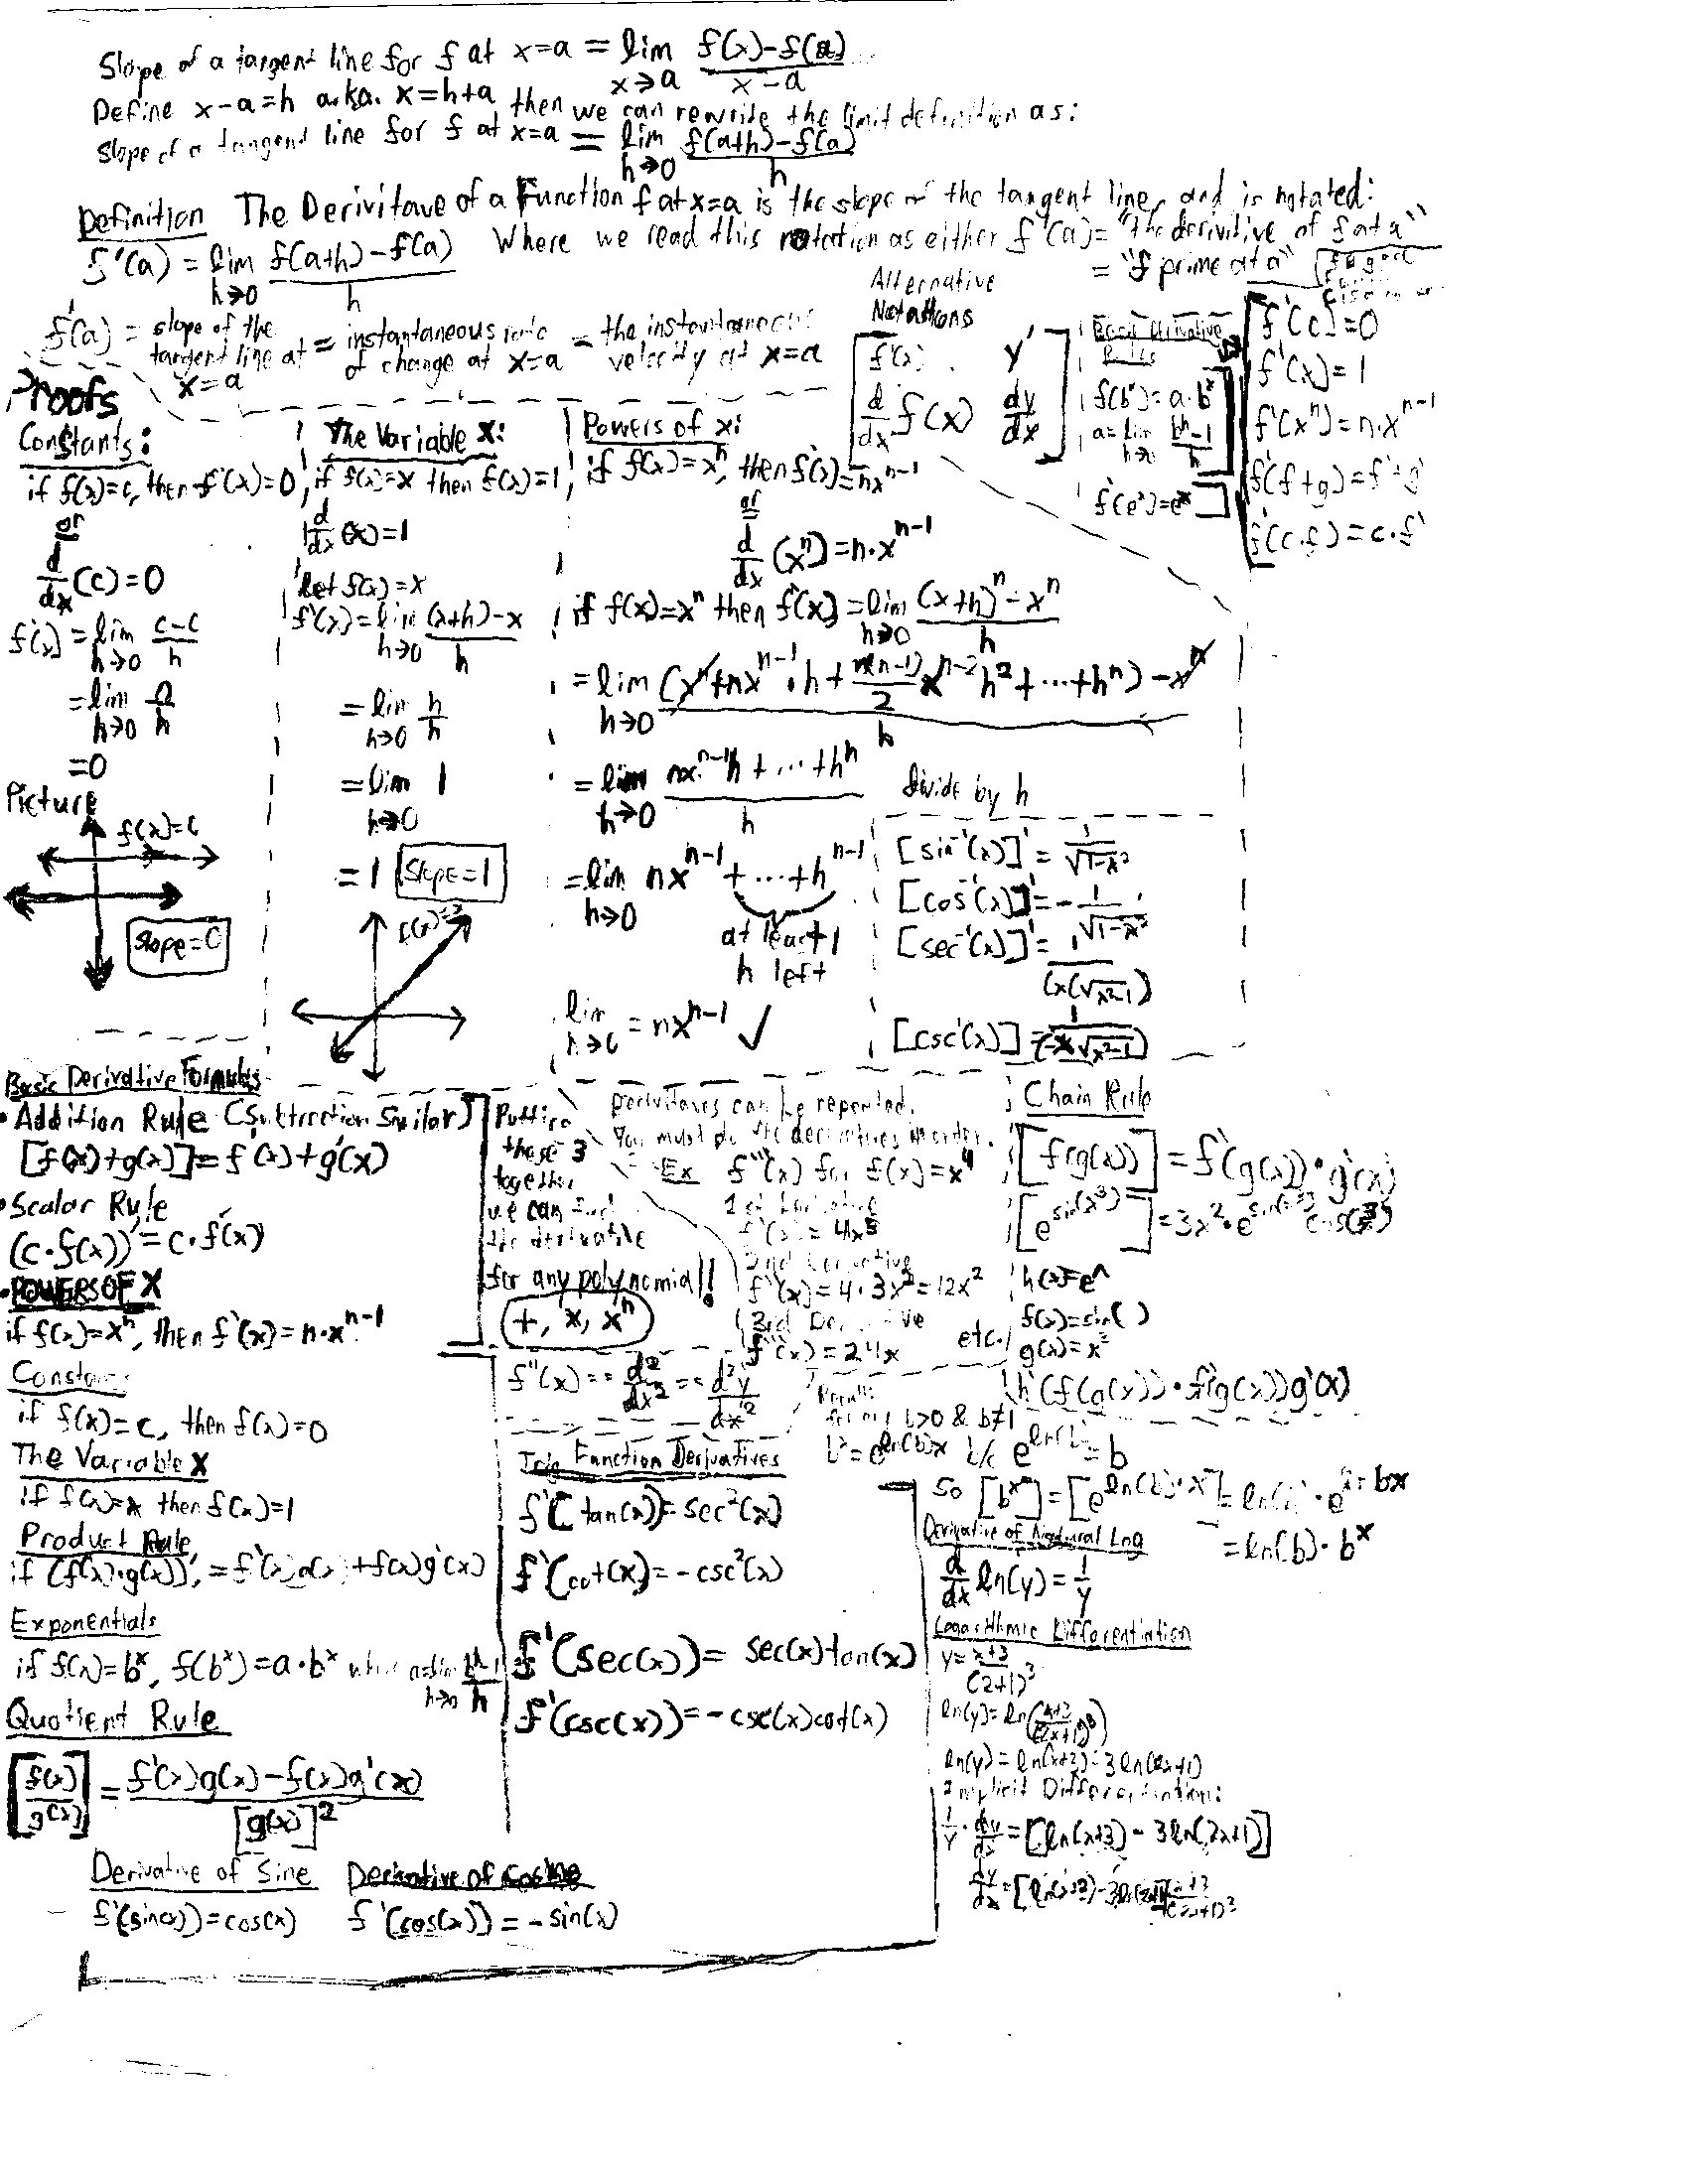 Slope of a tangent line for f at x=a = lim x→a f(x)-f(a) / x-a
Define x-a=h a.k.a. x=h+a then we can rewrite the limit definition as:
Slope of a tangent line for f at x=a = lim h→0 f(a+h)-f(a) / h
Definition The Derivitave of a Function f at x=a is the slope of the tangent line, and is notated:
f'(a) = lim h→0 f(a+h)-f(a) / h Where we read this notation as either f'(a)= "the derivitive of f at a"
= "f prime at a"
f'(a) = slope of the tangent line at x=a = instantaneous rate of change at x=a = the instantaneous velocity at x=a
Alternative
Notations
f'(x) y'
d/dx f(x) dy/dx
Basic Derivative
Rules
f(b^x)=a·b^x
a=lim h→0 b^h-1 / h
f'(e^x)=e^x
f'(c)=0
f'(x)=1
f'(x^n)=n·x^n-1
f'(f+g)=f'+g'
f'(c·f)=c·f'
Proofs
Constants:
if f(x)=c, then f'(x)=0
or
d/dx (c)=0
f'(x)=lim h→0 c-c / h
=lim h→0 0/h
=0
Picture
f(x)=c
Slope=0
The Variable x:
if f(x)=x then f'(x)=1
d/dx (x)=1
let f(x)=x
f'(x)=lim h→0 (x+h)-x / h
=lim h→0 h/h
=lim h→0 1
=1 Slope=1
Powers of x:
if f(x)=x^n, then f'(x)=nx^n-1
or
d/dx (x^n)=n·x^n-1
if f(x)=x^n then f'(x)=lim h→0 (x+h)^n-x^n / h
=lim h→0 (x^n+nx^n-1·h+n(n-1)/2 x^n-2 h^2+...+h^n)-x^n / h
=lim h→0 nx^n-1 h+...+h^n / h divide by h
=lim h→0 nx^n-1+...+h^n-1
at least 1
h left
lim h→0 =nx^n-1 ✓
[sin^-1(x)]'= 1/√1-x^2
[cos^-1(x)]'=- 1/√1-x^2
[sec^-1(x)]'= 1/(x(√x^2-1)
[csc^-1(x)]= 1/(-x√x^2-1)
Basic Derivative Formulas
• Addition Rule (Subtraction Similar)
[f(x)+g(x)]'=f'(x)+g'(x)
• Scalar Rule
(c·f(x))'=c·f'(x)
• POWERS OF X
if f(x)=x^n, then f'(x)=n·x^n-1
if f(x)=c, then f(x)=0
The Variable X
if f(x)=x then f(x)=1
Product Rule
if (f(x)·g(x))'=f'(x)g(x)+f(x)g'(x)
Exponentials
if f(x)=b^x, f(b^x)=a·b^x where a=lim h→0 b^h-1 / h
Quotient Rule
[f(x)/g(x)]'= f'(x)g(x)-f(x)g'(x) / [g(x)]^2
Derivative of Sine
f'(sin(x))=cos(x)
Derivative of Cosine
f'(cos(x))=-sin(x)
Putting
these 3
together
we can find
the derivative
for any polynomial!!
+, x, x^n
Derivitaves can be repeated.
You must do the derivatives in order.
Ex f'''(x) for f(x)=x^4
1st Derivative
f'(x)=4x^3
2nd Derivative
f''(x)=4·3x^2=12x^2
3rd Derivative
f'''(x)=24x etc.
f''(x)== d^2/dx^2 == d^2y/dx^2
Chain Rule
[f(g(x))]'=f'(g(x))·g'(x)
[e^sin(x^3)]'=3x^2·e^sin(x^3) cos(x^3)
h(x)=e^x
f(x)=sin( )
g(x)=x^3
h'(f(g(x))·f'(g(x))g'(x)
Recall:
for any b>0 & b≠1
b^x=e^ln(b)x b/c e^ln(b)=b
so [b^x]'=[e^ln(b)·x]'
=ln(b)·b^x
Trig Function Derivatives
f'(tan(x))=sec^2(x)
f'(cot(x)=-csc^2(x)
f'(sec(x))=sec(x)tan(x)
f'(csc(x))=-csc(x)cot(x)
Derivative of Natural Log
d/dx ln(y)=1/y
Logarithmic Differentiation
y= x+3 / (2+1)^3
ln(y)=ln(x+3 / (2x+1)^3)
ln(y)=ln(x+3)-3ln(2x+1)
Implicit Differentiation:
1/y · dy/dx=[ln(x+3)-3ln(2x+1)]